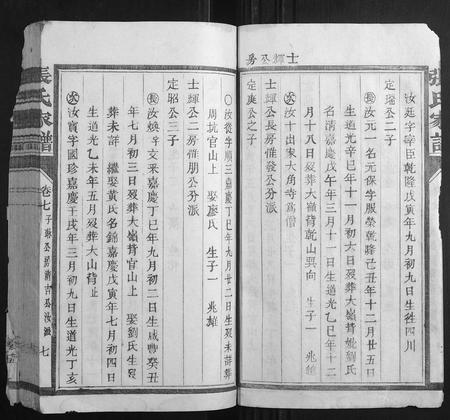 士輝公房
汝廷字宰臣乾隆戊寅年初九日生往四川
定瑞公二子
長汝元一名元保字服榮乾隆己丑年十二月廿五日
生道光辛巳年十一月初六日歿葬大嶺背妣劉氏
名清嘉慶戊午年三月十一日生道光乙巳年十二
月十八日歿葬大嶺背乾山巽向 生子一 兆
次汝十出家大角寺為僧
士輝公長房惟發公分派
定庚公之子
汝從字順三嘉慶丁巳年九月廿二日生歿未詳葬
周坑官山上 娶廖氏 生子一 兆雄
士輝公二房惟朋公分派
定昭公三子
長汝煥字文釆嘉慶丁巳年九月初二日生咸豐癸丑
年七月初三日歿葬大嶺背官山上 娶劉氏生歿
葬未詳 繼娶黃氏名錦嘉慶戊寅年七月初四日
生道光乙未年五月歿葬大山背止
次汝寶字國珍嘉慶壬戌年三月初九日生道光丁亥
張氏家譜
卷七
七